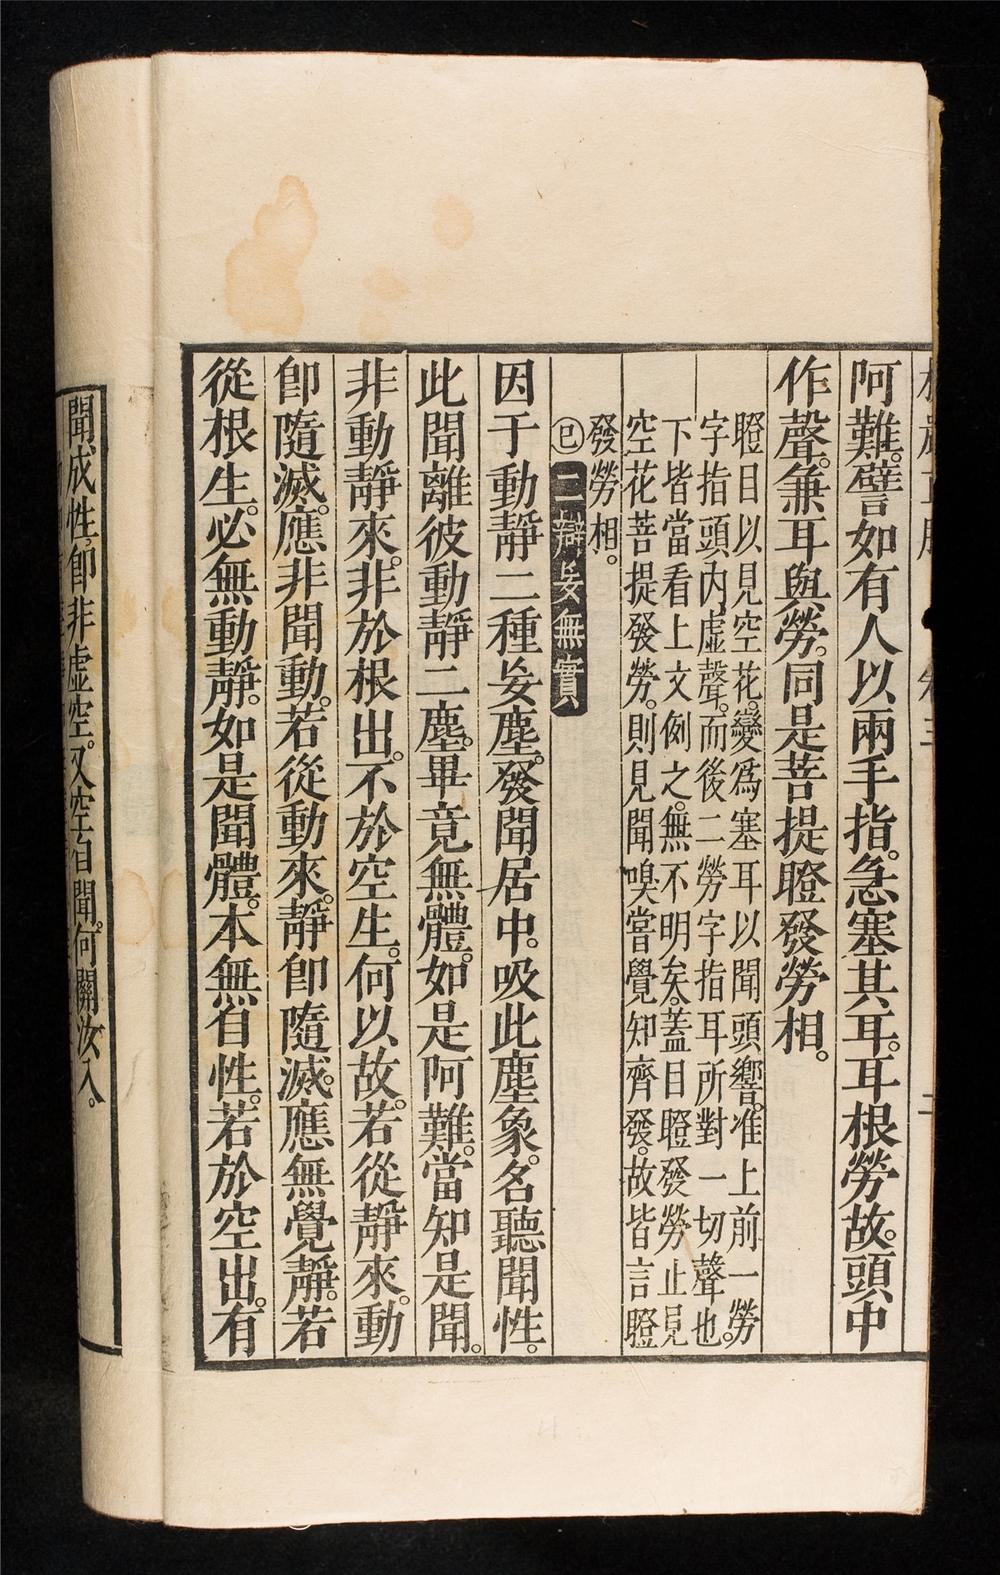 阿難。譬如有人以兩手指。急塞其耳。耳根勞故。頭中
作聲。兼耳與勞。同是菩提瞪發勞相。
瞪目以見空花。變爲塞耳以聞頭響。准上前一勞
字指頭內虛聲。而後二勞字指耳所對一切聲也。
下皆當看上文例之。無不明矣。蓋目瞪發勞止見
空花菩提發勞。則見聞嗅嘗覺知齊發。故皆言瞪
發勞相。
㊂二辯妄無實
因于動靜二種妄塵。發聞居中。吸此塵象。名聽聞性。
此聞離彼動靜二塵。畢竟無體。如是阿難。當知是聞。
非動靜來。非於根出。不於空生。何以故。若從靜來。動
卽隨滅。應非聞動。若從動來。靜卽隨滅。應無覺靜。若
從根生。必無動靜。如是聞體。本無自性。若於空出。有
聞成性。卽非虛空。又空自聞。何關汝入。